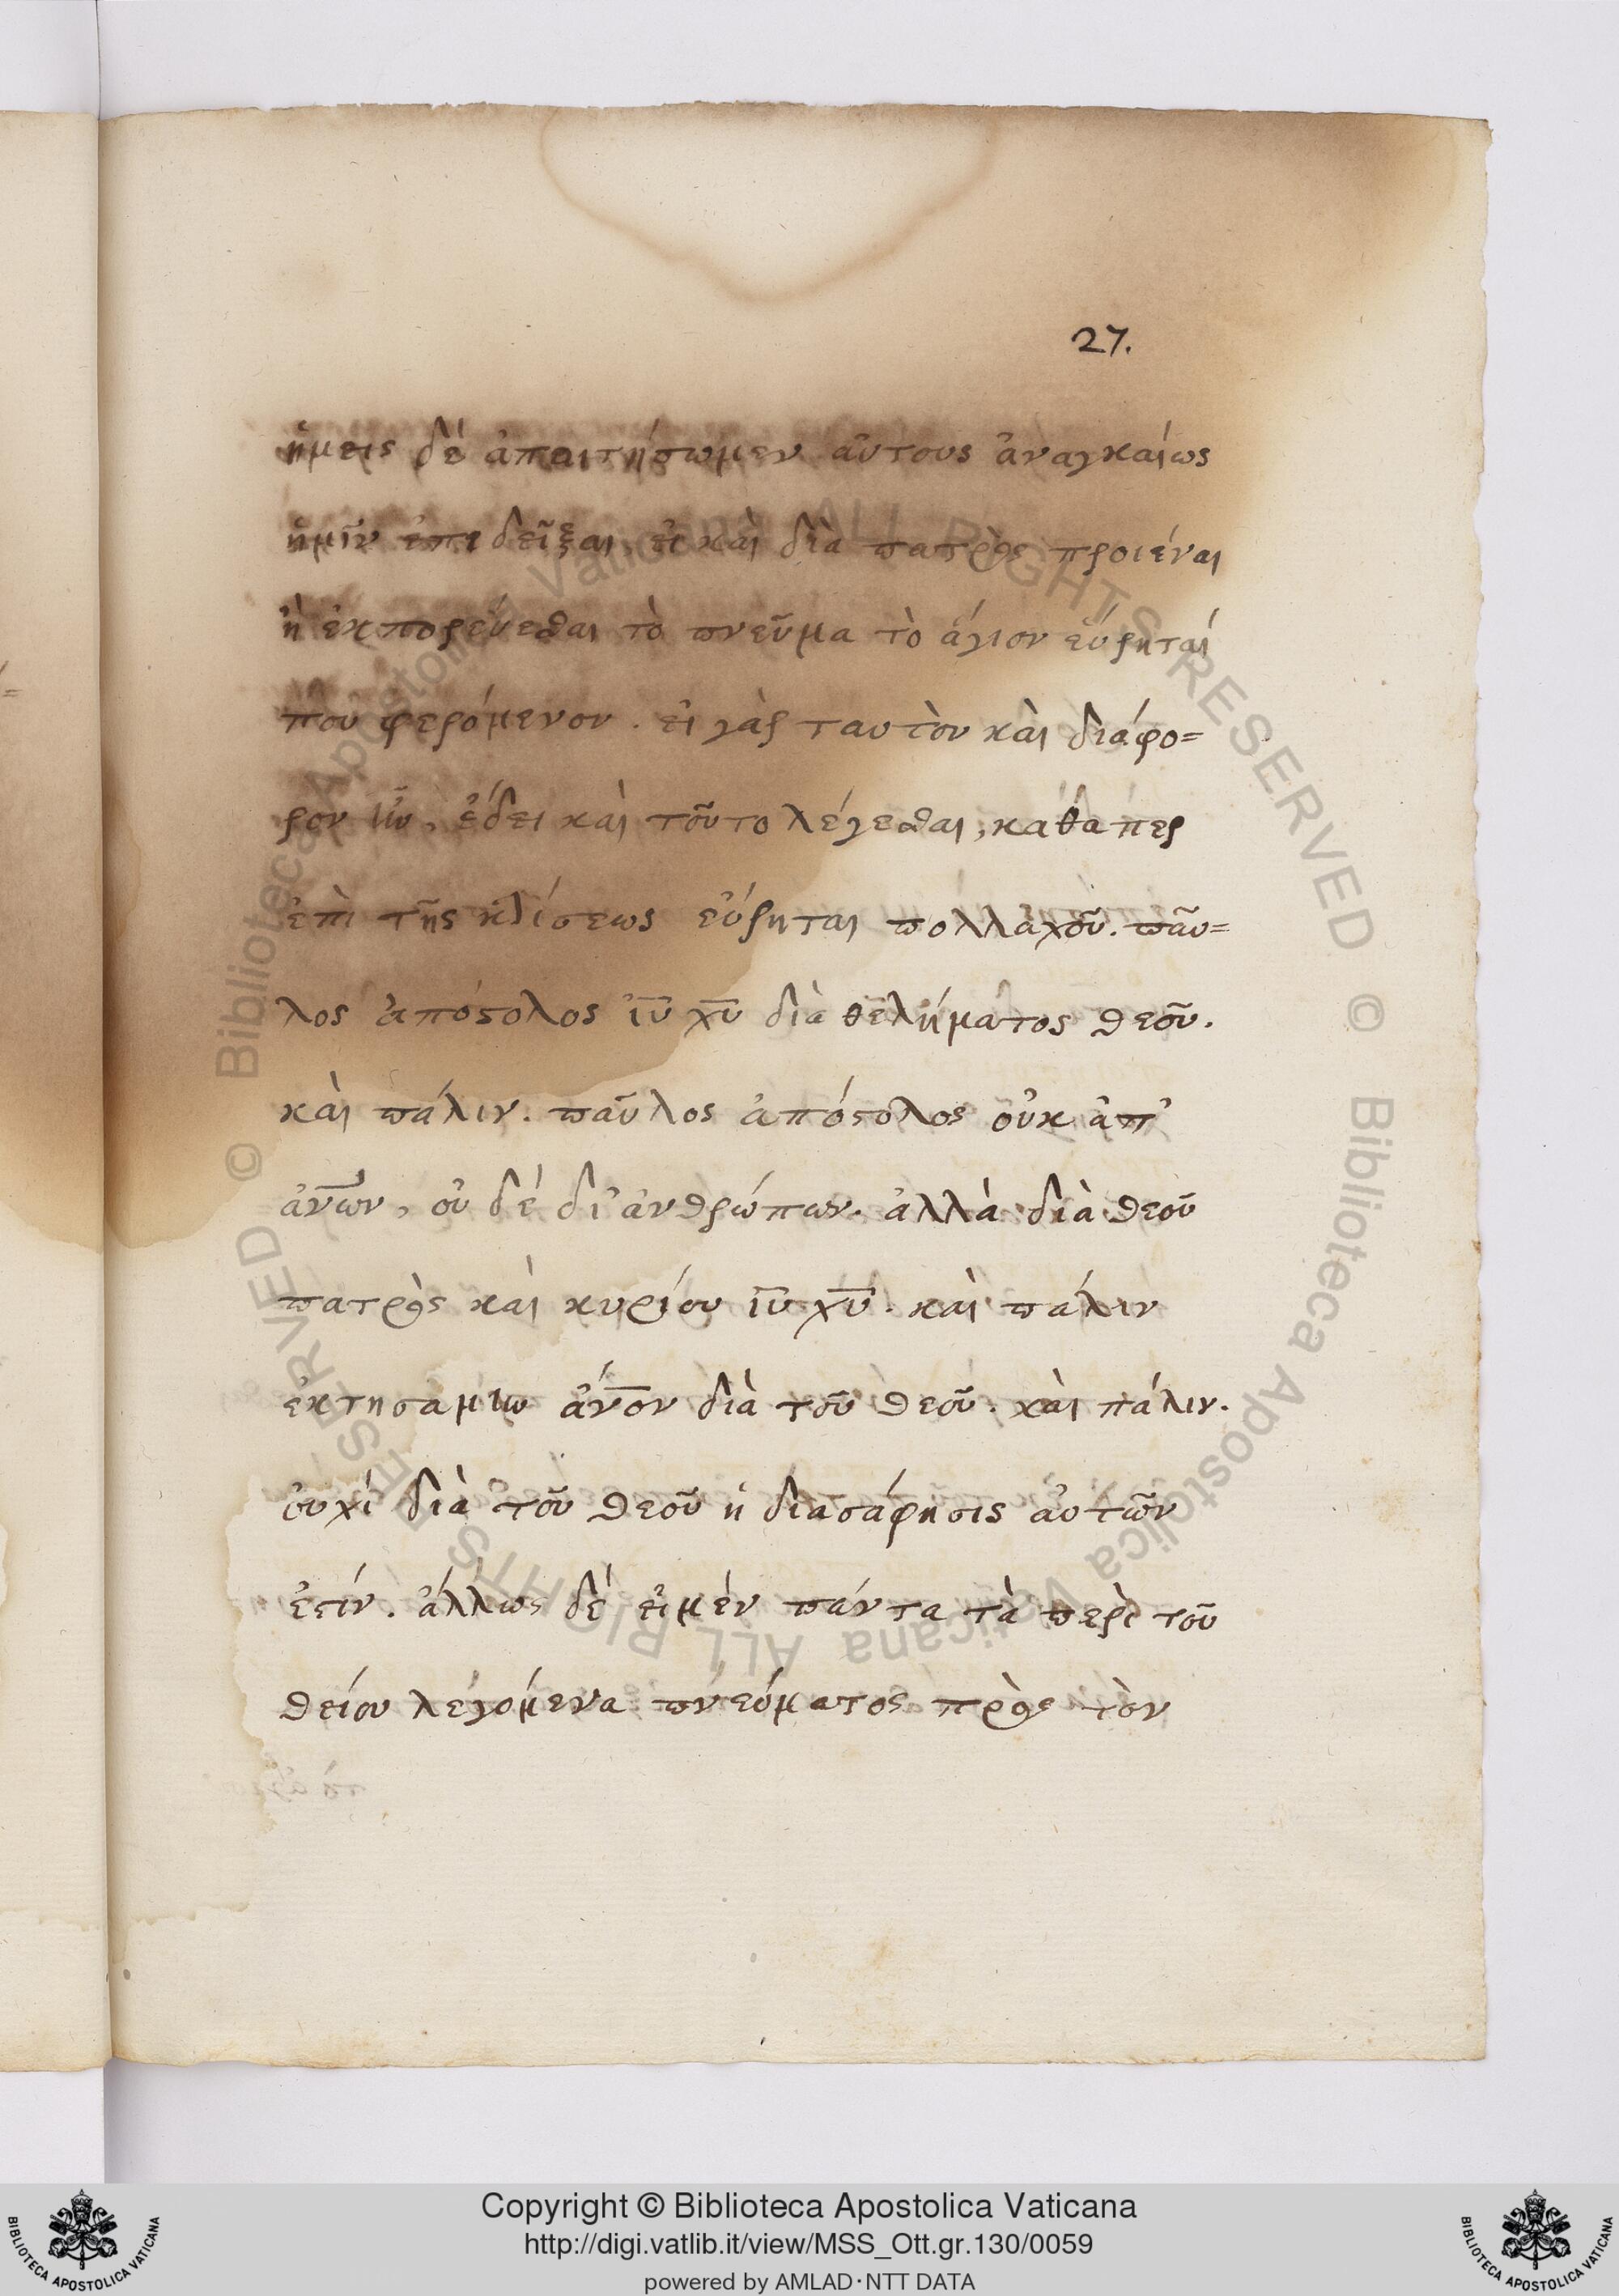 27.
ἡμεῖς δὲ ἀπαιτήσωμεν αὐτοὺς ἀναγκαίως
ἡμῖν ἐπιδεῖξαι, εἰ καὶ διὰ πατρὸς προιέναι
ἢ ἐκπορεύεσθαι τὸ πνεῦμα τὸ ἅγιον εὕρηταί
που φερόμενον. εἰ γὰρ ταυτὸν καὶ διάφο=
ρον ἦν, ἔδει καὶ τοῦτο λέγεσθαι, καθάπερ
ἐπὶ τῆς κλίσεως εὕρηται πολλαχοῦ. παῦ=
λος ἀπόστολος ἰῦ χῦ διὰ θελήματος θεοῦ.
καὶ πάλιν. παῦλος ἀπόστολος οὐκ ἀπ'
ἀνων, οὐ δέ δι' ἀνθρώπων. ἀλλὰ διὰ θεοῦ
πατρὸς καὶ κυρίου ἰῦ χῦ. καὶ πάλιν
ἐκτησάμην ἄνον διὰ τοῦ θεοῦ. καὶ πάλιν.
οὐχὶ διὰ τοῦ θεοῦ ἡ διασάφησις αὐτῶν
ἐστίν. ἄλλως δὲ εἰ μὲν πάντα τὰ περὶ τοῦ
θείου λεγόμενα πνεύματος πρὸς τὸν
© Biblioteca Apostolica Vaticana ALL RIGHTS RESERVED © Biblioteca Apostolica Vaticana ALL RIGHTS RESERVED
Copyright © Biblioteca Apostolica Vaticana
http://digi.vatlib.it/view/MSS_Ott.gr.130/0059
powered by AMLAD·NTT DATA
BIBLIOTECA APOSTOLICA VATICANA
BIBLIOTECA APOSTOLICA VATICANA